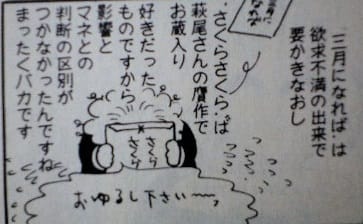 〝三月になれば〟は
欲求不満の出来で
要かきなおし
〝さくらさくら〟は
萩尾さんの贋作で
お蔵入り
好きだった
ものですから
影響と
マネとの
判断の区別が
つかなかったんですね
まったくバカです
さくら
さくら
おゆるし下さい〜〜っ